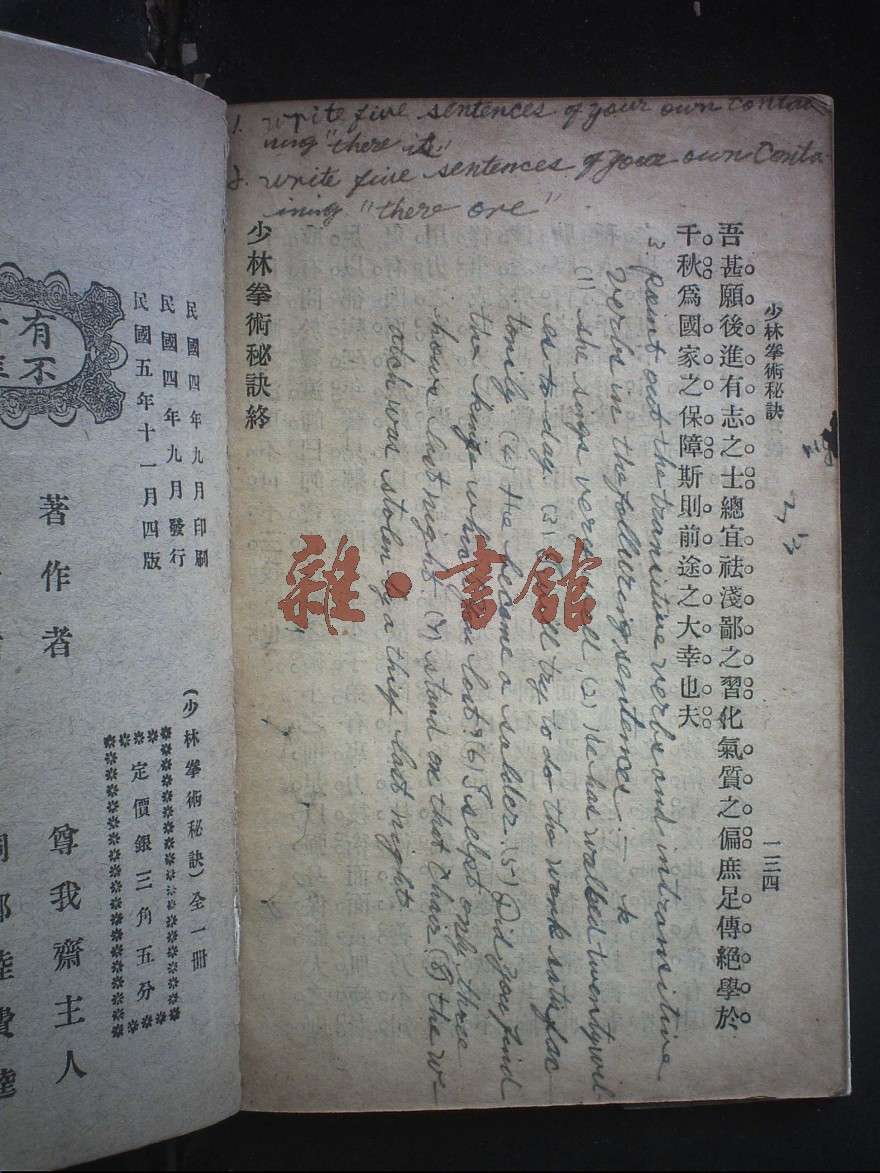 1. write five sentences of your own contai
ning "there is"
2. write five sentences of your own conta-
ining "there are"
吾甚願後進有志之士總宜祛淺鄙之習化氣質之偏庶足傳絕學於
千秋爲國家之保障斯則前途之大幸也夫
少林拳術秘訣終
少林拳術秘訣
一三四
3 Point out the transitive verbs and intransitive
verbs in the following sentences:—
(1) she sings very well, (2) He has walked twenty mil-
es to day. (3) I will try to do the work satisfac-
torily (4) He became a solder. (5) Did you find
the knife which you lost? (6) I selpt only three
hours last night. (7) stand on that chair. (8) the w-
atch was stolen by a thief last night.
雜·書館
民國四年九月印刷
民國四年九月發行
民國五年十一月四版
(少林拳術秘訣)全一冊
定價銀三角五分
有
不
著作者
尊我齋主人
陸費